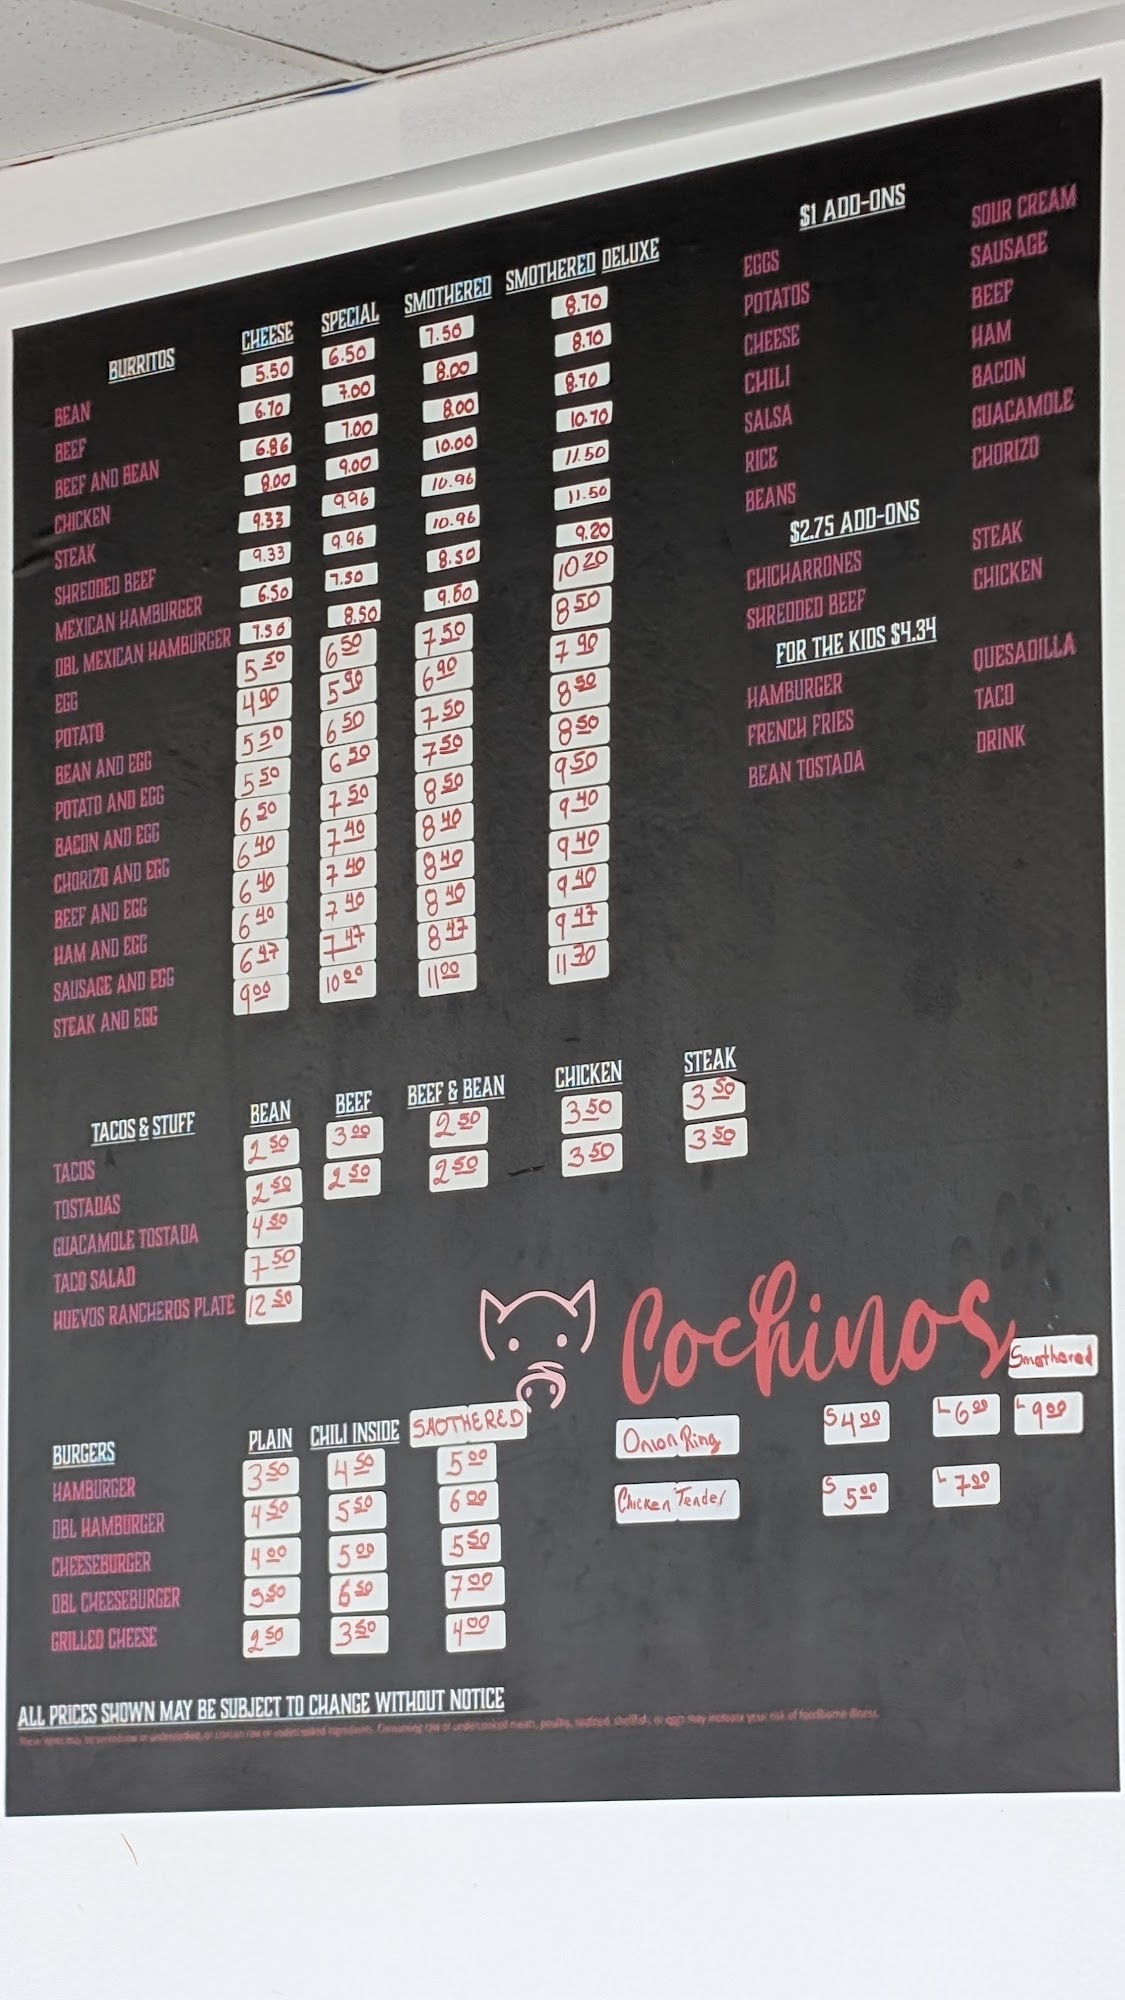 BURRITOS CHEESE SPECIAL SMOTHERED SMOTHERED DELUXE
BEAN 5.50 6.50 7.50 8.70
BEEF 6.70 7.00 8.00 8.70
BEEF AND BEAN 6.86 7.00 8.00 8.70
CHICKEN 8.00 9.00 10.00 10.70
STEAK 9.33 9.96 10.96 11.50
SHREDDED BEEF 9.33 9.96 10.96 11.50
MEXICAN HAMBURGER 6.50 7.50 8.50 9.20
DBL MEXICAN HAMBURGER 7.50 8.50 9.50 10 20
EGG 5 50 6 50 7 50 8 50
POTATO 4 90 5 90 6 90 7 90
BEAN AND EGG 5 50 6 50 7 50 8 50
POTATO AND EGG 5 50 6 50 7 50 8 50
BACON AND EGG 6 50 7 50 8 50 9 50
CHORIZO AND EGG 6 40 7 40 8 40 9 40
BEEF AND EGG 6 40 7 40 8 40 9 40
HAM AND EGG 6 40 7 40 8 40 9 40
SAUSAGE AND EGG 6 47 7 47 8 47 9 47
STEAK AND EGG 9 00 10 00 11 00 11 70
$1 ADD-ONS
EGGS SOUR CREAM
POTATOS SAUSAGE
CHEESE BEEF
CHILI HAM
SALSA BACON
RICE GUACAMOLE
BEANS CHORIZO
$2.75 ADD-ONS
CHICHARRONES STEAK
SHREDDED BEEF CHICKEN
FOR THE KIDS $4.34
HAMBURGER QUESADILLA
FRENCH FRIES TACO
BEAN TOSTADA DRINK
TACOS & STUFF BEAN BEEF BEEF & BEAN CHICKEN STEAK
TACOS 2 50 3 00 2 50 3 50 3 50
TOSTADAS 2 50 2 50 2 50 3 50 3 50
GUACAMOLE TOSTADA 4 50
TACO SALAD 7 50
HUEVOS RANCHEROS PLATE 12 50
Cochinos
Smothered
Onion Ring S 4 00 L 6 00 L 9 00
Chicken Tender S 5 00 L 7 00
BURGERS PLAIN CHILI INSIDE SMOTHERED
HAMBURGER 3 50 4 50 5 00
DBL HAMBURGER 4 50 5 50 6 00
CHEESEBURGER 4 00 5 00 5 50
DBL CHEESEBURGER 5 50 6 50 7 00
GRILLED CHEESE 2 50 3 50 4 00
ALL PRICES SHOWN MAY BE SUBJECT TO CHANGE WITHOUT NOTICE
These items may be served raw or undercooked, or contain raw or undercooked ingredients. Consuming raw or undercooked meats, poultry, seafood, shellfish, or eggs may increase your risk of foodborne illness.